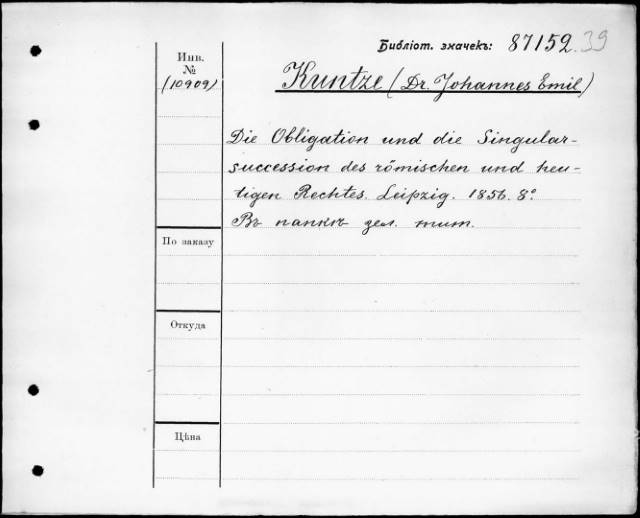 Библіот. значекъ: 87152 39
Инв.
№
(10909)
Kuntze (Dr. Johannes Emil)
Die Obligation und die Singular-
succession des römischen und heu-
tigen Rechtes. Leipzig. 1856. 8º.
Въ папкѣ зел. тит.
По заказу
Откуда
Цѣна